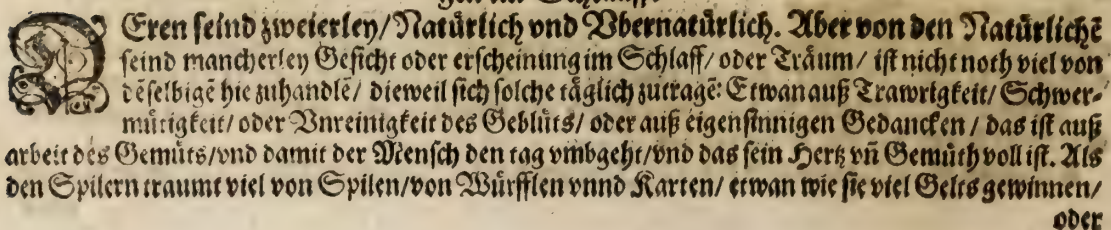 DEren seind zweierley/ Natürlich vnd Vbernatürlich. Aber von den Natürlichē
seind mancherley Gesicht oder erscheinung im Schlaff/ oder Träum/ ist nicht noth viel von
dēselbigē hie zuhandlē/ dieweil sich solche täglich zutragē: Etwan auß Trawrigkeit/ Schwer-
mütigkeit/ oder Vnreinigkeit des Geblüts/ oder auß eigensinnigen Gedancken/ das ist auß
arbeit des Gemüts/ vnd damit der Mensch den tag vmbgeht/ vnd das sein Hertz vn̄ Gemüth voll ist. Als
den Spilern traumt viel von Spilen/ von Würfflen vnnd Karten/ etwan wie sie viel Gelts gewinnen/
oder